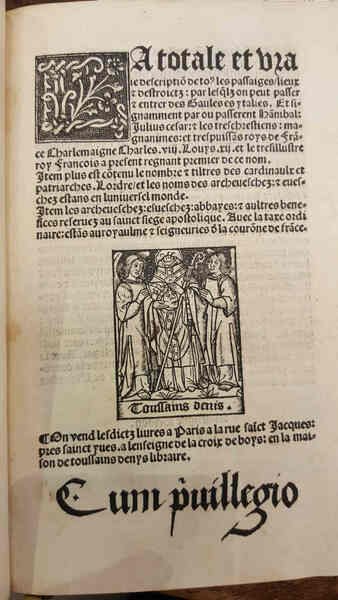 LA totale et vra
ie descriptiõ de to⁹ les passaiges/lieux
& destroictz: par lesq̃lz on peut passer
& entrer des Gaules es ytalies. Et si
gnamment par ou passerent Hãnibal:
Julius cesar: & les treschrestiens: ma
gnanimes: et trespuissãs roys de frã
ce Charlemaigne Charles.viij. Loys.xij.et le tresillustre
roy Francois a present regnant premier de ce nom.
Item plus est cõtenu le nombre & tiltres des cardinaulx et
patriarches. Lordre/et les noms des archeueschez: & eues-
chez estans en luniuersel monde.
Item les archeueschez: eueschez: abbayes: & aultres bene-
fices reseruez au sainct siege apostolique. Auec la taxe ordi
naire: estãs au royaulme & seigneuries d̃ la courõne de frãce.
Toussains denis.
¶On vend lesdictz liures a Paris a la rue saĩct Jacques:
pres sainct yues. a lenseigne de la croix de boys: en la mai-
son de toussains denys libraire.
Cum p̃uillegio